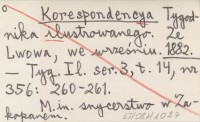 Korespondencya Tygod-
nika ilustrowanego. Ze
Lwowa, we wrześniu. 1882.
— Tyg. Il. ser. 3, t. 14, nr
356: 260-261.
M. in. snycerstwo w Za-
kopanem.